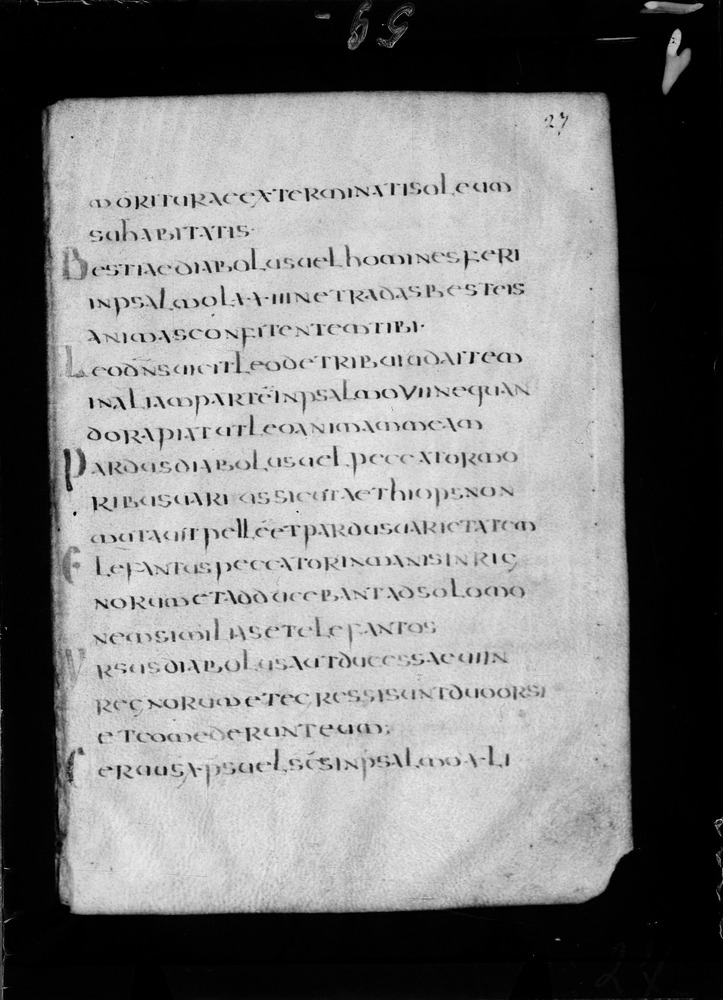 59
27
moriturae exterminatis oleum
suhabitatis·
Bestiae diabolus uel homines feri
in psalmo LXXIII ne tradas besteis
animas confitentem tibi·
Leo dns uicit leo de tribu iuda item
in aliam parte in psalmo VII ne quan
do rapiat ut leo animam meam
Pardus diabolus uel peccator mo
ribus uarius sicut aethiops non
mutauit pelle et pardus uarietatem
Elefantus peccator inmanis in rig
norum et adducebant ad solomo
nem similas et elefantos
Ursus diabolus aut duces saeui in
regnorum et egressi sunt duo orsi
et comederunt eum;
Ceruus xps uel scs in psalmo XLI